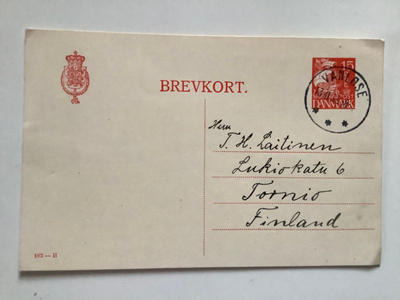 BREVKORT.
15
DANMARK
VANLØSE
Herrn
T. H. Laitinen
Lukiokatu 6
Tornio
Finland